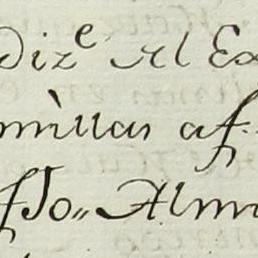 dize el Ex
millas af.
fso,, Alm